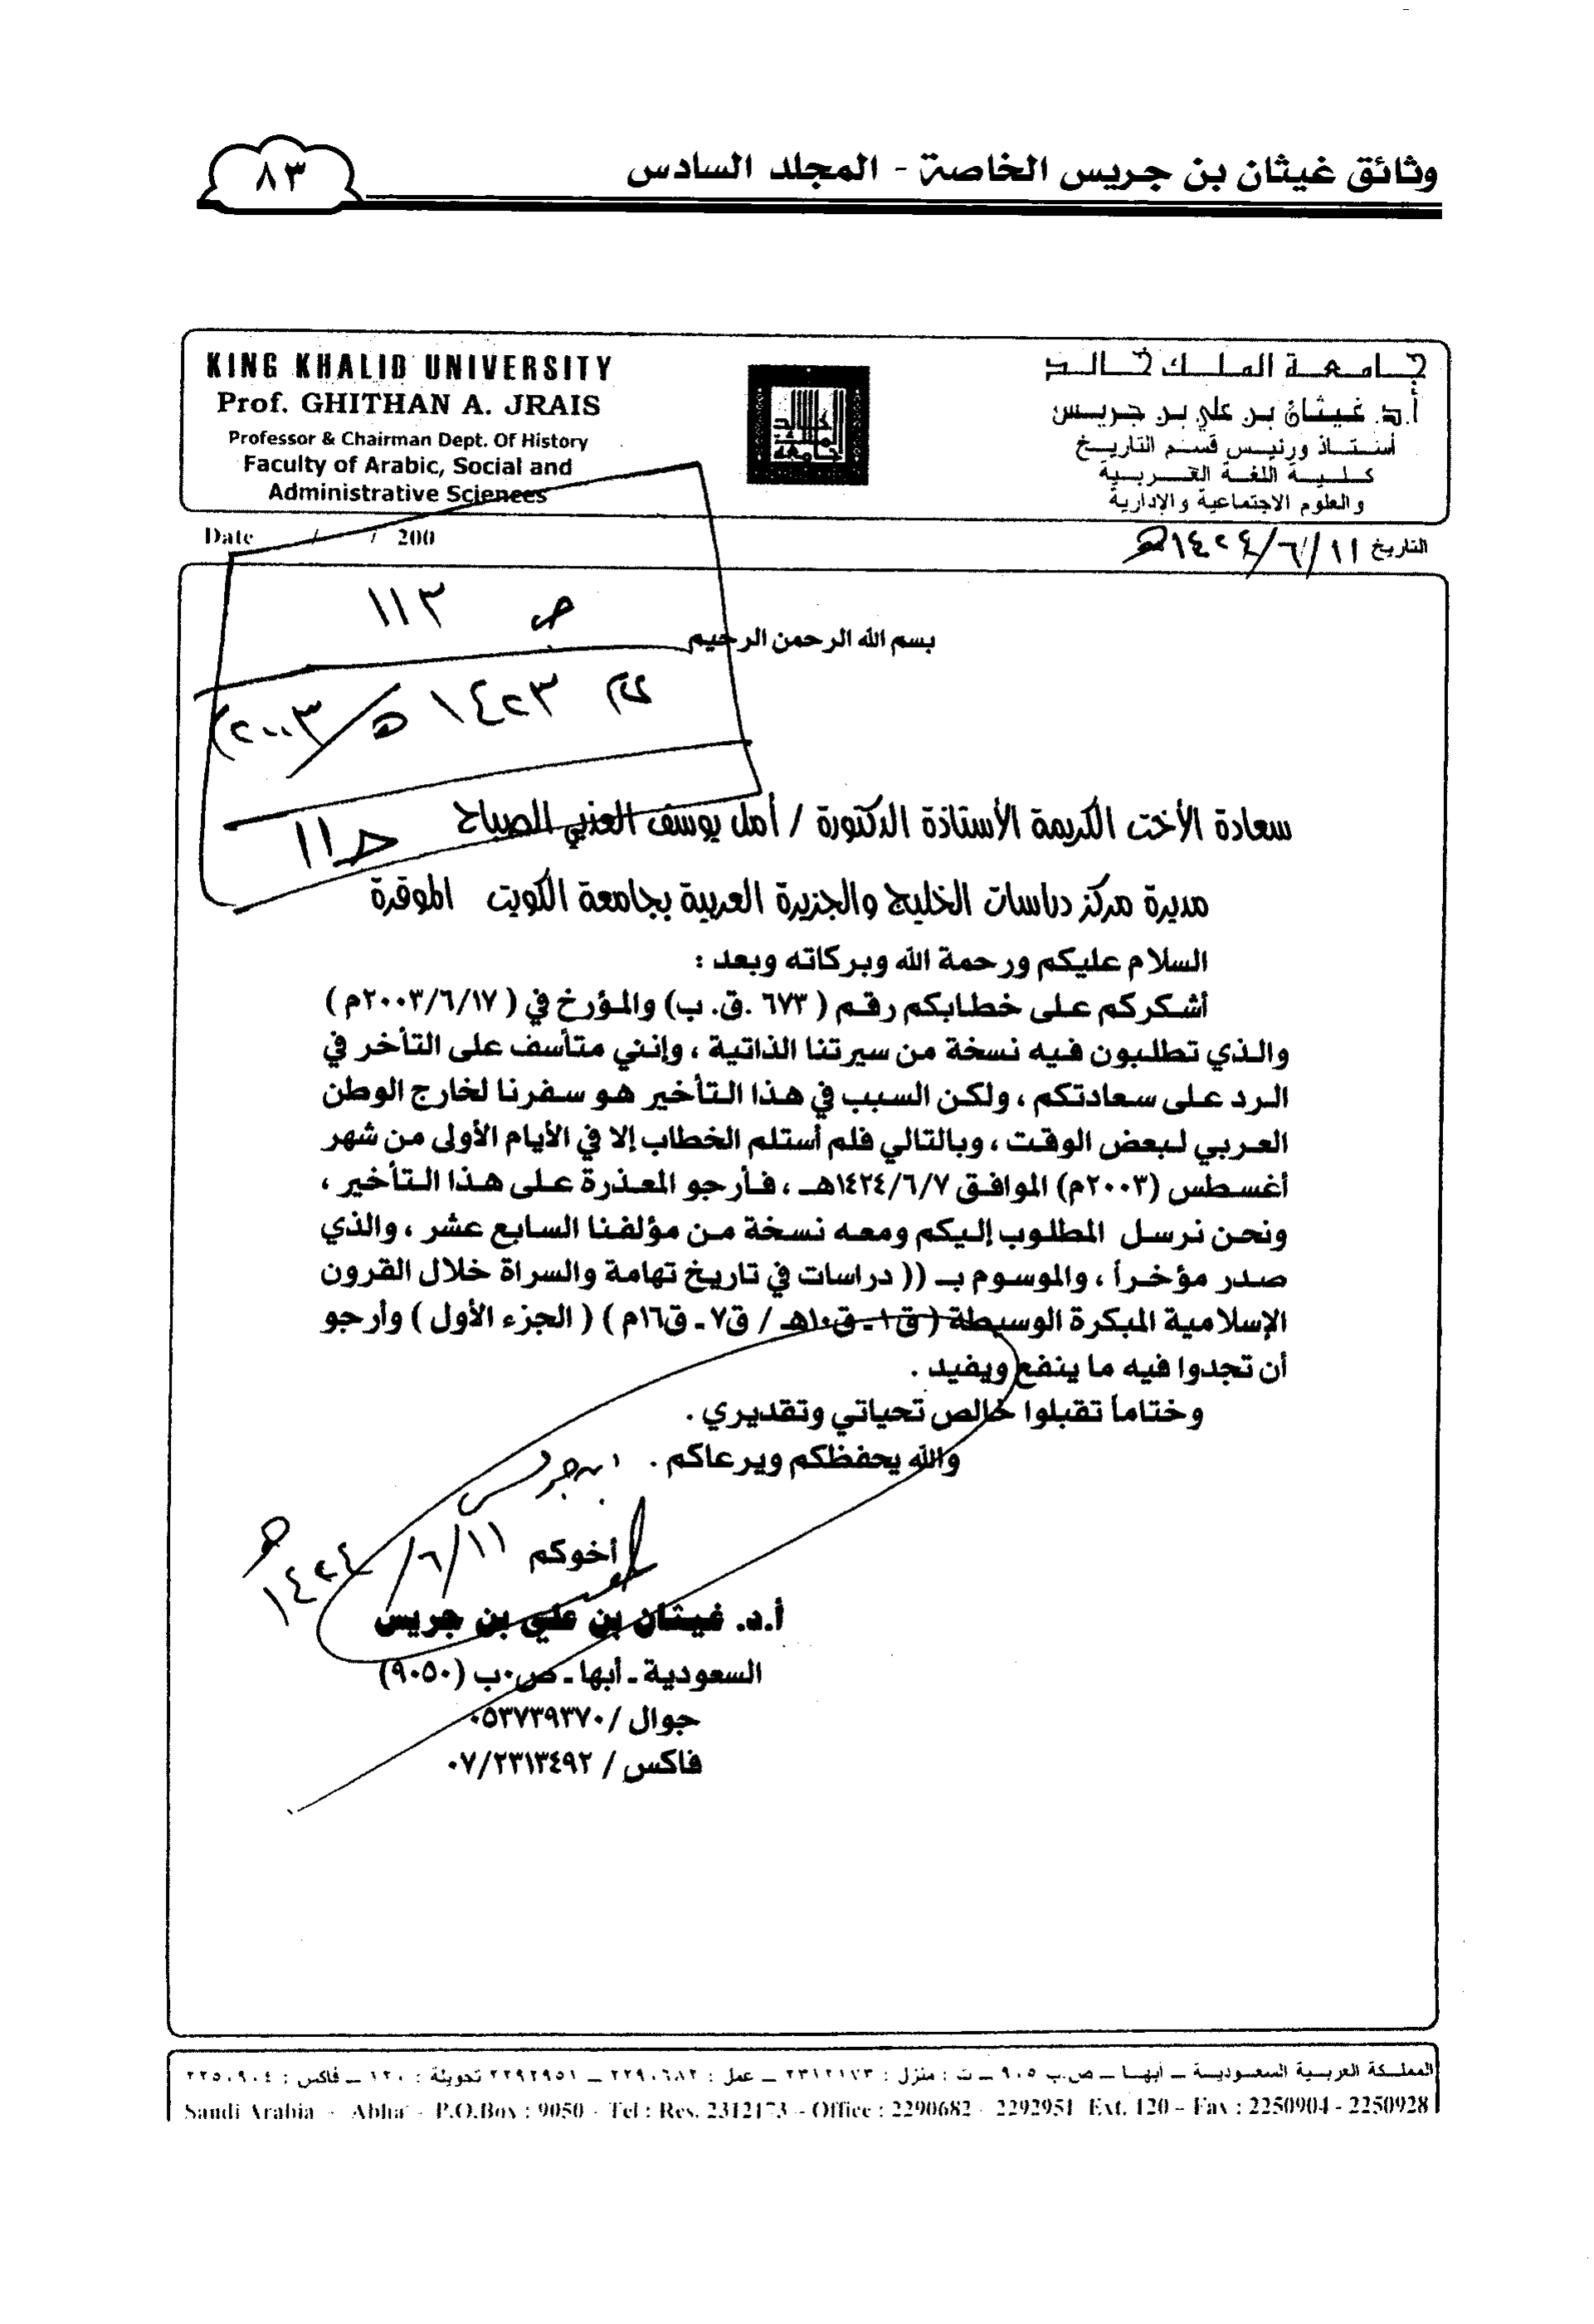 وثائق غيثان بن جريس الخاصة - المجلد السادس
٨٣
KING KHALID UNIVERSITY
Prof. GHITHAN A. JRAIS
Professor & Chairman Dept. Of History
Faculty of Arabic, Social and
Administrative Sciences
جامعة الملك خالد
أ.د. غيثان بن علي بن جريس
أستاذ ورئيس قسم التاريخ
كلية اللغة العربية
والعلوم الاجتماعية والإدارية
Date / / 200
التاريخ ١١/٦/١٤٢٤هـ
ص ١١٣
١٤٢٣هـ/٢٠٠٣
حـ١١
بسم الله الرحمن الرحيم
سعادة الأخت الكريمة الأستاذة الدكتورة / أمل يوسف العذبي الصباح
مديرة مركز دراسات الخليج والجزيرة العربية بجامعة الكويت الموقرة
السلام عليكم ورحمة الله وبركاته وبعد :
أشكركم على خطابكم رقم ( ٦٧٣ .ق. ب) والمؤرخ في ( ٢٠٠٣/٦/١٧م )
والذي تطلبون فيه نسخة من سيرتنا الذاتية ، وإنني متأسف على التأخر في
الرد على سعادتكم ، ولكن السبب في هذا التأخير هو سفرنا لخارج الوطن
العربي لبعض الوقت ، وبالتالي فلم أستلم الخطاب إلا في الأيام الأولى من شهر
أغسطس (٢٠٠٣م) الموافق ١٤٢٤/٦/٧هـ ، فأرجو المعذرة على هذا التأخير ،
ونحن نرسل المطلوب إليكم ومعه نسخة من مؤلفنا السابع عشر ، والذي
صدر مؤخراً ، والموسوم بـ (( دراسات في تاريخ تهامة والسراة خلال القرون
الإسلامية المبكرة الوسيطة ( ق١ـ ق١٠هـ / ق٧ـ ق١٦م ) ( الجزء الأول ) وأرجو
أن تجدوا فيه ما ينفع ويفيد .
وختاماً تقبلوا خالص تحياتي وتقديري .
والله يحفظكم ويرعاكم .
ابن جريس
أخوكم
١١/٦/١٤٢٤هـ
أ.د. غيثان بن علي بن جريس
السعودية ـ أبها ـ ص.ب (٩٠٥٠)
جوال /٠٥٣٧٣٩٣٧٠
فاكس / ٠٧/٢٣١٣٤٩٢
المملكة العربية السعودية – أبها – ص.ب ٩٠٥ – ت : منزل : ٢٣١٢١٧٣ – عمل : ٢٢٩٠٦٨٢ – ٢٢٩٢٩٥١ تحويلة : ١٢٠ – فاكس : ٢٢٥٠٩٠٤
Saudi Arabia - Abha - P.O.Box : 9050 - Tel : Res. 2312173 - Office : 2290682 - 2292951 Ext. 120 - Fax : 2250904 - 2250928